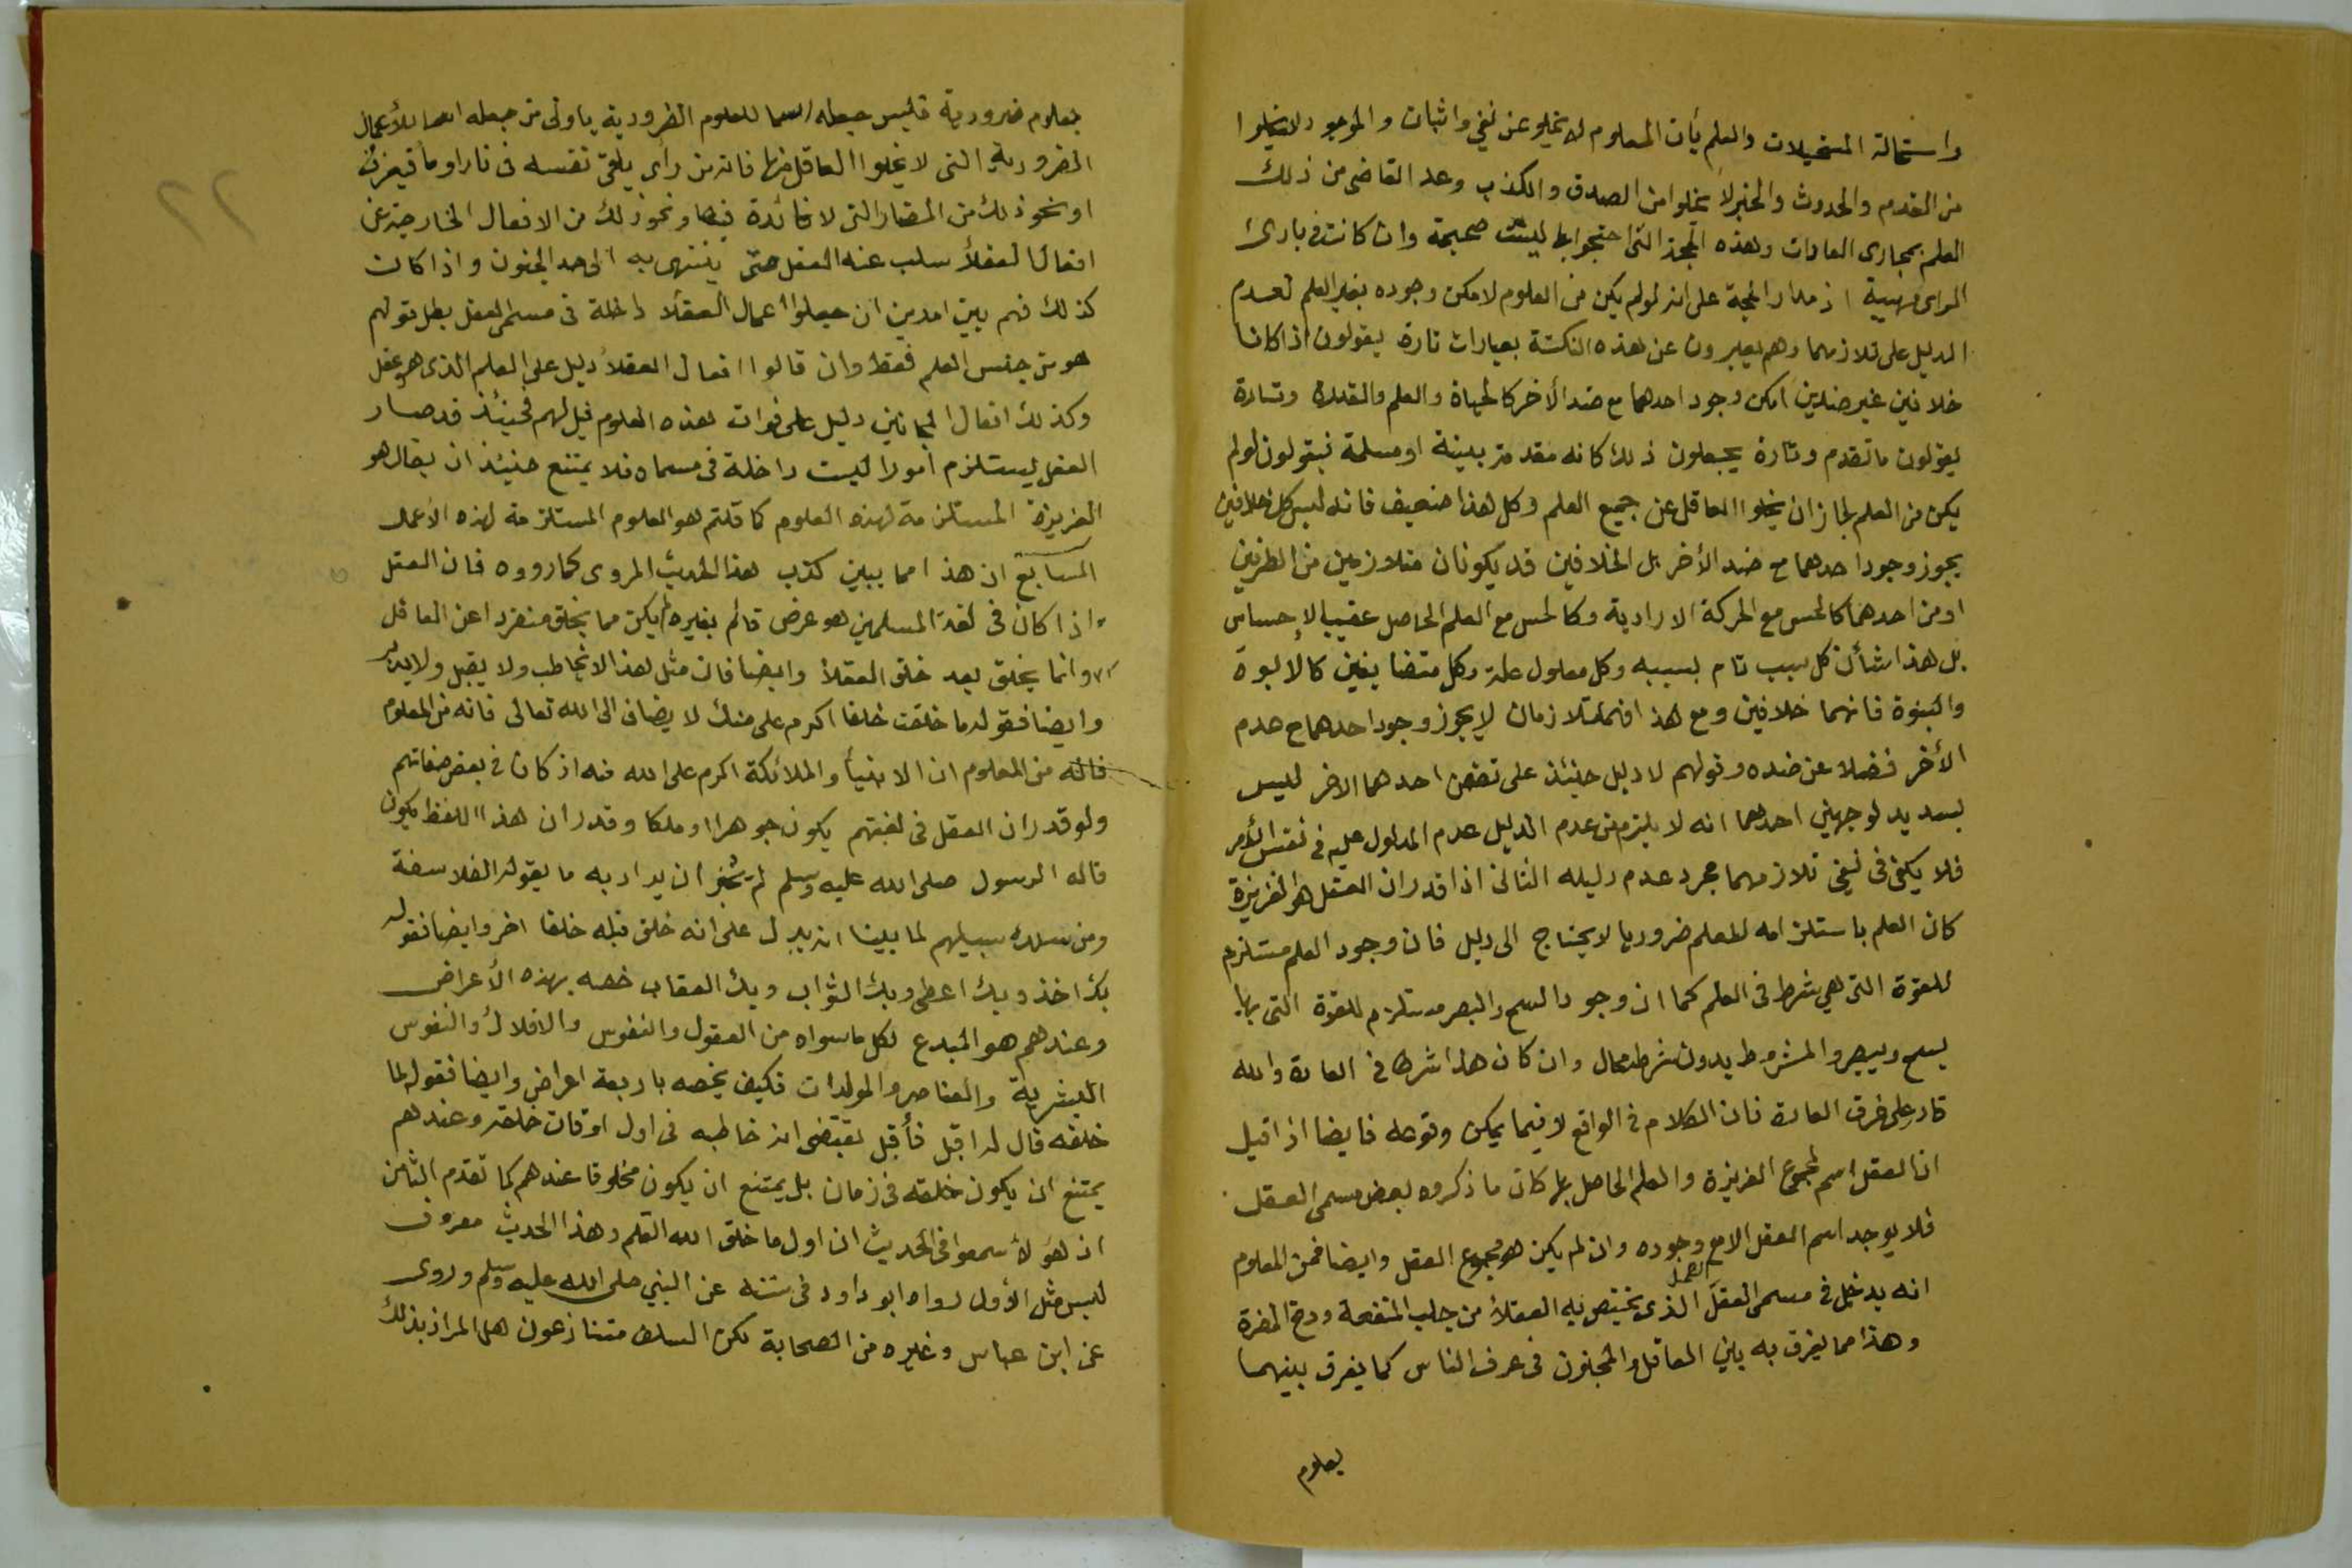 واستحالة المستحيلات والعلم بأن المعلوم لا يخلو عن نفي واثبات والموجود لا يخلوا
من القدم والحدوث والخبر لا يخلوا من الصدق والكذب وعد القاضي من ذلك
العلم بمجارى العادات وهذه الحجة التى احتجوا بها ليست صحيحة وان كانت في بادى
الراى مهيبة اذ مدار الحجة على انه لو لم يكن من العلوم لا مكن وجوده بغير العلم لعدم
الدليل على تلازمهما وهم يعبرون عن هذه النكتة بعبارات تارة يقولون اذا كانا
خلافين غير ضدين امكن وجود احدهما مع ضد الأخر كالحياة والعلم والقدرة وتارة
يقولون ما تقدم وتارة يجعلون ذلك كانه مقدمة بينة او مسلمة فيقولون لو لم
يكن من العلم لجاز ان يخلوا العاقل عن جميع العلم وكل هذا ضعيف فانه ليس كل خلافين
يجوز وجود احدهما مع ضد الأخر بل الخلافين قد يكونان متلازمين من الطرفين
او من احدهما كالحس مع الحركة الارادية وكالحس مع العلم الحاصل عقيب الإحساس
بل هذا شأن كل سبب تام لسببه وكل معلول علة وكل متضايفين كالأبوة
والبنوة فانهما خلافين ومع هذا فهما متلازمان لا يجوز وجود احدهما مع عدم
الأخر فضلا عن ضده وقولهم لا دليل حينئذ على تضمن احدهما الاخر ليس
بسديد لوجهين احدهما انه لا يلزم من عدم الدليل عدم المدلول عليه في نفس الأمر
فلا يكفى فى نفي تلازمهما مجرد عدم دليله الثانى اذا قدر ان العقل هو الغريزة
كان العلم باستلزامه للعلم ضروريا لا يحتاج الى دليل فان وجود العلم مستلزم
للقوة التى هي شرط فى العلم كما ان وجود السمع والبصر مستلزم للقوة التى بها
يسمع ويبصر والمشروط بدون شرطه محال وان كان هذا شرطا في العادة والله
قادر على خرق العادة فان الكلام في الواقع لا فيما يمكن وقوعه فايضا اذا قيل
ان العقل اسم لمجموع الغريزة والعلم الحاصل بها كان ما ذكروه بعض مسمى العقل
فلا يوجد اسم العقل الا مع وجوده وان لم يكن هو مجموع العقل وايضا فمن المعلوم
انه يدخل في مسمى العقل العمل الذى يختص به العقلاء من جلب المنفعة ودفع المضرة
وهذا مما يفرق به بين العاقل والمجنون فى عرف الناس كما يفرق بينهما
بعلوم
بعلوم ضرورية فليس جعله اسما للعلوم الضرورية باولى من جعله اسما للأعمال
الضرورية التى لا يخلوا العاقل منها فانه من رأى يلقى نفسه فى نار او ماء فيغرق
او نحو ذلك من المضار التى لا فائدة فيها ونحو ذلك من الافعال الخارجة عن
افعال العقلأ سلب عنه العقل حتى ينتهى به الى حد الجنون واذا كان
كذلك فهم بين امرين ان جعلوا اعمال العقلا داخلة فى مسمى العقل بطل قولهم
هو من جنس العلم فقط وان قالوا افعال العقلا دليل على العلم الذى هو عقل
وكذلك افعال المجانين دليل على فوات هذه العلوم قيل لهم فحينئذ قد صار
العقل يستلزم أمورا ليست داخلة فى مسماه فلا يمتنع حينئذ ان يقال هو
الغريزة المستلزمة لهذه العلوم كما قلتم هو العلوم المستلزمة لهذه الأعمال
السابع ان هذا مما يبين كذب هذا الحديث المروى كما رووه فان العقل
اذا كان فى لغة المسلمين هو عرض قائم بغيره لم يكن مما يخلق منفردا عن العاقل
وانما يخلق بعد خلق العقلأ وايضا فان مثل هذا لا يخاطب ولا يقبل ولا يدبر
وايضا فقوله ما خلقت خلقا اكرم على منك لا يضاف الى الله تعالى فانه من المعلوم
فانه من المعلوم ان الانبيأ والملائكة اكرم على الله منه اذ كان في بعض صفاتهم
ولو قدر ان العقل فى لغتهم يكون جوهرا او ملكا وقدر ان هذا اللفظ يكون
قاله الرسول صلى الله عليه وسلم لم يجز ان يراد به ما يقوله الفلاسفة
ومن سلك سبيلهم لما بينا انه يدل على انه خلق قبله خلقا اخر وايضا فقوله
بك اخذ وبك اعطى وبك الثواب وبك العقاب خصه بهذه الأعراض
وعندهم هو المبدع لكل ما سواه من العقول والنفوس والافلاك والنفوس
البشرية والعناصر والمولدات فكيف يخصه باربعة اعراض وايضا فقوله لما
خلقه قال له اقبل فأقبل يقتضى انه خاطبه فى اول اوقات خلقه وعندهم
يمتنع ان يكون خلقه فى زمان بل يمتنع ان يكون مخلوقا عندهم كما تقدم الثامن
ان هؤلأ سمعوا فى الحديث ان اول ما خلق الله القلم وهذا الحديث معروف
ليس مثل الأول رواه ابو داود فى سننه عن النبي صلى الله عليه وسلم وروى
عن ابن عباس وغيره من الصحابة لكن السلف متنازعون هل المراد بذلك
٢٢